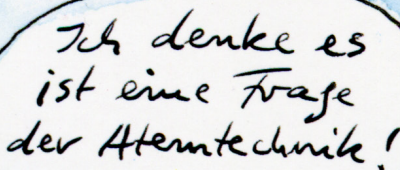 Ich denke es
ist eine Frage
der Atemtechnik!